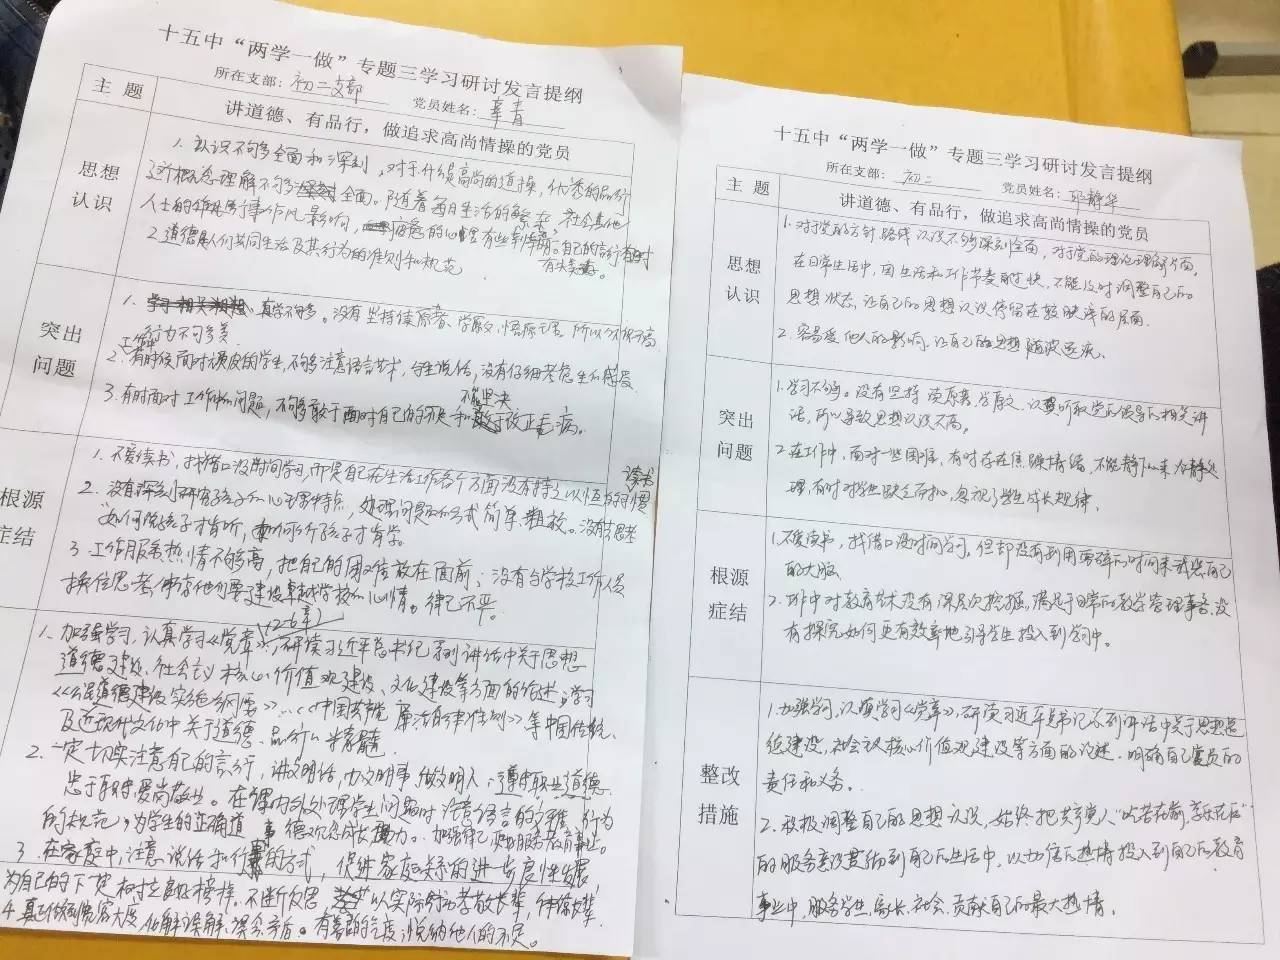 十五中“两学一做”专题三学习研讨发言提纲
所在支部：初二支部 党员姓名：辜青
主 题
讲道德、有品行，做追求高尚情操的党员
思想
认识
1. 认识不够全面和深刻，对于什么是高尚的道操，优秀的品行
这个概念理解不够全面。随着每日生活的繁杂，社会其他
人士的行事作风影响，自己的言行有时
有失妥。
2. 道德是人们共同生活及其行为的准则和规范
突出
问题
1. 真学不够多。没有坚持读原著、学原文、悟原理，所以认识不高
行力不够
2. 有时候面对顽皮的学生，不够注意语言艺术，与生说话，没有仔细考虑生的感受
3. 有时面对工作中的问题，不够敢于面对自己的不足和不能坚决改正毛病。
根源
症结
1. 不爱读书，找借口没时间学习，而是自己在生活工作各个方面没有持之以恒的读书习惯
2. 没有深刻研究孩子的心理特点，处理问题的方式简单、粗放。没有去思考
“如何说孩子才肯听，如何行孩子才肯学。
3. 工作服务热情不够高，把自己的困难放在面前；没有与学校工作人员
换位思考，体谅他们要建设卓越学校的心情。律己不严。
1. 加强学习，认真学习《党章》，研读习近平总书记系列讲话中关于思想
道德建设、社会主义核心价值观建设、文化建设等方面的论述；学习
《公民道德建设实施纲要》……《中国共产党廉洁自律准则》等中国传统、
及近现代文化中关于道德、品行的精髓
2. 一定切实注意自己的言行，讲文明话，办文明事，做文明人；遵守职业道德
忠于职守，爱岗敬业。在课内外处理学生问题时注意语言的文雅、行为
的规范，为学生的正确道德观念成长助力。加强律己，更好服务教育事业。
3. 在家庭中，注意说话和行事的方式，促进家庭关系的进一步良性发展，
为自己的下一代树立良好榜样。不断反思，以实际行动孝敬长辈，
4. 真正做到宽容大度，化解误解、误会矛盾。有善的态度，悦纳他人的不足。
十五中“两学一做”专题三学习研讨发言提纲
所在支部：初二 党员姓名：邱静华
主 题
讲道德、有品行，做追求高尚情操的党员
思想
认识
1. 对于党的方针、路线认识不够深刻全面，对于党的理论理解片面。
在日常生活中，因生活和工作节奏的过快，不能及时调整自己的
思想状态，让自己的思想认识停留在较肤浅的层面。
2. 容易受他人的影响，让自己的思想随波逐流。
突出
问题
1. 学习不够。没有坚持读原著、学原文，认真听取党的领导的相关讲
话，所以导致思想认识不高。
2. 在工作中，面对一些困难，有时存在焦躁情绪，不能静下心来冷静处
理，有时对学生缺乏耐心，忽视了学生成长规律。
根源
症结
1. 不爱读书，找借口没时间学习，但却没有利用零碎的时间来武装自己
的大脑。
2. 工作中对教育艺术没有深层次挖掘，满足于日常的教学管理事务，没
有探究如何更有效率地引导学生投入到学习中。
整改
措施
1. 加强学习，认真学习《党章》，研读习近平总书记系列讲话中关于思想道
德建设，社会主义核心价值观建设等方面的论述，明确自己党员的
责任和义务。
2. 积极调整自己的思想认识，始终把共产党人“吃苦在前，享乐在后”
的服务意识贯彻到自己的生活中，以加倍的热情投入到自己的教育
事业中，服务学生、家长、社会，贡献自己的最大热情。